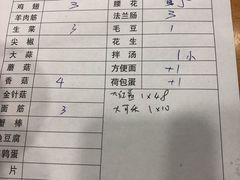 鸡翅 3 腰花
羊肉筋 法兰肠 3
生菜 3 毛豆 1
尖椒 花生
大蒜 拌汤 1小
蘑菇 方便面 +1
香菇 4 荷包蛋 +1
金针菇 大红袍 1×48
面筋 3 大可乐 1×10
蟹棒
鱼豆腐
鹌鹑蛋
片